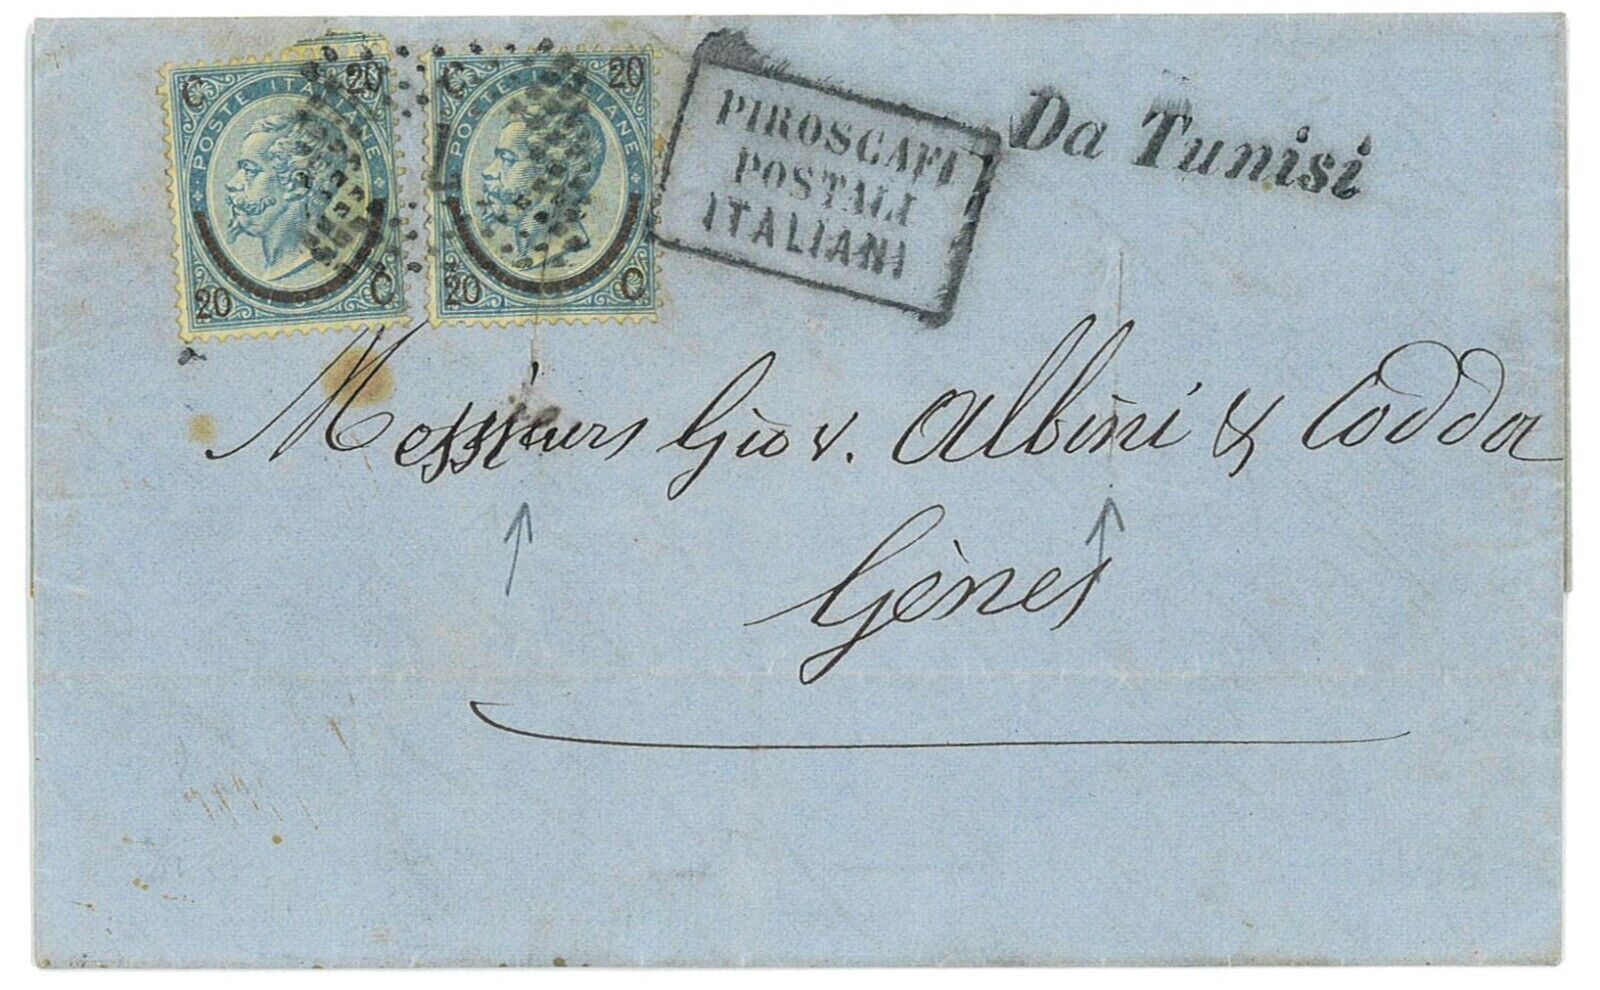 C 20
POSTE ITALIANE
20 C
C 20
POSTE ITALIANE
20 C
PIROSCAFI
POSTALI
ITALIANI
Da Tunisi
Messieurs Giov. Albini & Codda
Gènes